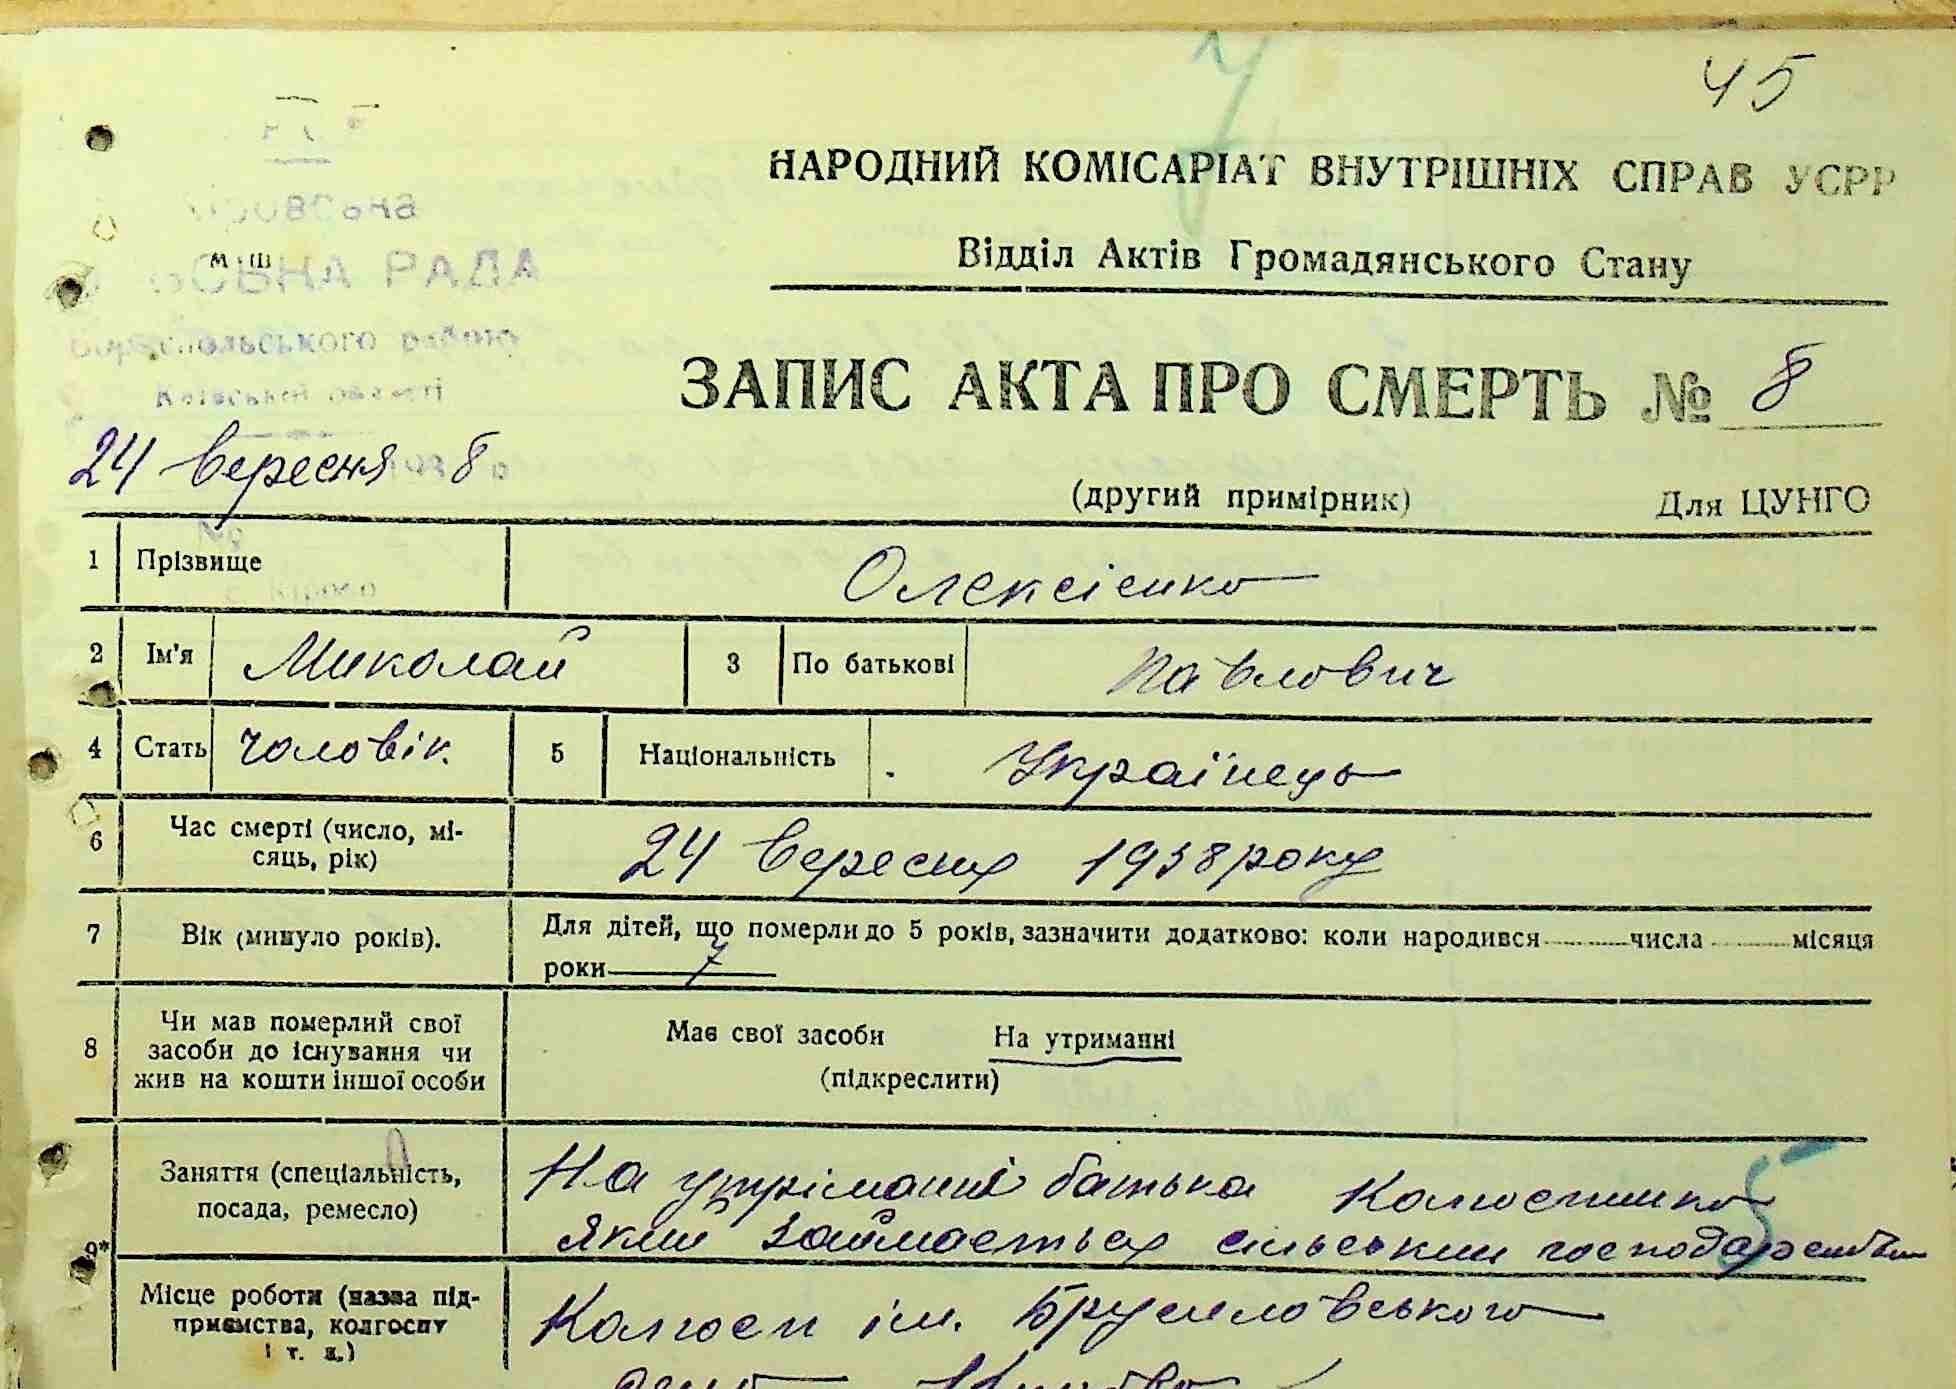 45
НАРОДНИЙ КОМІСАРІАТ ВНУТРІШНІХ СПРАВ УСРР
Відділ Актів Громадянського Стану
РАДА
ЗАПИС АКТА ПРО СМЕРТЬ № 8
24 вересня 8
(другий примірник) Для ЦУНГО
1 Прізвище Олексієнко
2 Ім'я Миколай 3 По батькові Павлович
4 Стать чоловік. 5 Національність Українець
6 Час смерті (число, мі-
сяць, рік) 24 вересня 1938 року
7 Вік (минуло років). Для дітей, що померли до 5 років, зазначити додатково: коли народився числа місяця
роки 7
8 Чи мав померлий свої
засоби до існування чи
жив на кошти іншої особи
Має свої засоби На утриманні
(підкреслити)
9* Заняття (спеціальність,
посада, ремесло)
На утріманні батька Колгоспника
який займається сільським господарством
Місце роботи (назва під-
приємства, колгоспу
і т. д.)
Колгосп ім.